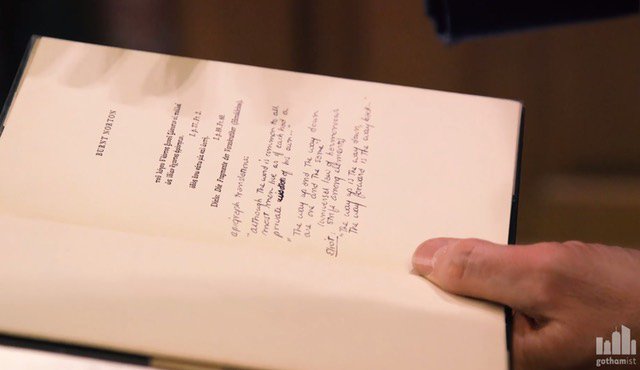 BURNT NORTON
τοῦ λόγου δ' ἐόντος ξυνοῦ ζώουσιν οἱ πολλοί
ὡς ἰδίαν ἔχοντες φρόνησιν.
I. p. 77. Fr. 2.
ὁδὸς ἄνω κάτω μία καὶ ὡυτή.
I. p. 89. Fr. 60.
Diels: Die Fragmente der Vorsokratiker (Herakleitos).
epigraph translations:
"although the word is common to all
most men live as if each had a
private of his own..."
"The way up and the way down
are one and the same"
universal law of harmonious
Eliot: strife among elements
"The way up is the way down,
the way forward is the way back."
gothamist